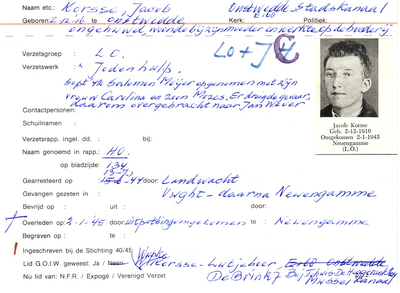 Naam etc.: Korsse, Jacob Onstwedde Stadskanaal
Geboren: 2-12-16 te Onstwedde Kerk: E100 Politiek:
ongehuwd, woonde bij zijn moeder en werkte op de boerderij
Verzetsgroep : L.O. LO + JH C
Verzetswerk : Jodenhulp.
Sept 42 Salomon Meijer opgenomen met zijn
vrouw Carolina en zoon Mozes. Er dreigde gevaar,
Contactpersonen: daarom overgebracht naar Jan Wever
Schuilnaam :
Verzetsrapp. ingel. dd. : bij:
Naam genoemd in rapp.: HO.
op bladzijde: 134
13-7
Gearresteerd op : 15-6-44 door: Landwacht
Gevangen gezeten in : Vught - daarna Neuengamme
Bevrijd op : uit : door:
Overleden op: 2-1-45 door: uitputting omgekomen te Neuengamme
Begraven op : te
Ingeschreven bij de Stichting 40/45:
Lid G.O.I.W. geweest: Ja / Neen Korsse-Luitjeboer E100 Onstwedde
Nu lid van: N.F.R. / Expogé / Verenigd Verzet De Brink 7
Mussel Kanaal
Jacob Korsse
Geb. 2-12-1916
Omgekomen 2-1-1945
Neuengamme
(L.O.)